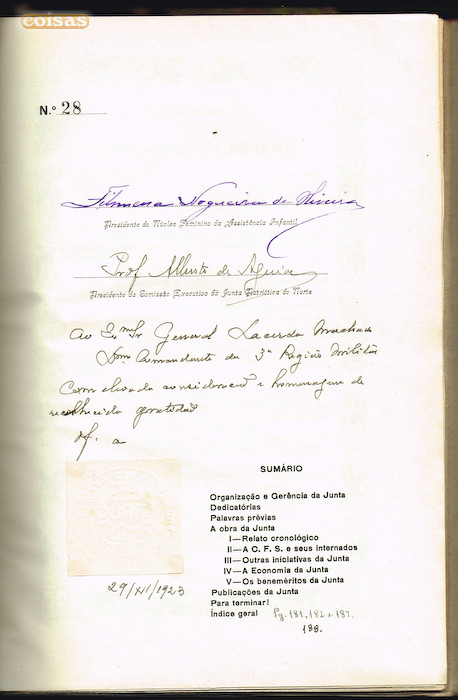 coisas
N.º 28
Filomena Nogueira de Oliveira
Presidente do Núcleo Feminino da Assistência Infantil
Prof Alberto de Aguiar
Presidente da Comissão Executiva da Junta Patriótica do Norte
Ao Ex.mo Sr General Lacerda Machado
Dom Comandante da 3ª Região Militar
Com elevada consideração e homenagem de
reconhecida gratidão
Of. a
SUMÁRIO
Organização e Gerência da Junta
Dedicatórias
Palavras prévias
A obra da Junta
I—Relato cronológico
II—A C. F. S. e seus internados
III—Outras iniciativas da Junta
IV—A Economia da Junta
V—Os beneméritos da Junta
Publicações da Junta
Para terminar!
Índice geral Pg. 181, 182 e 187.
188.
29/XI/1923